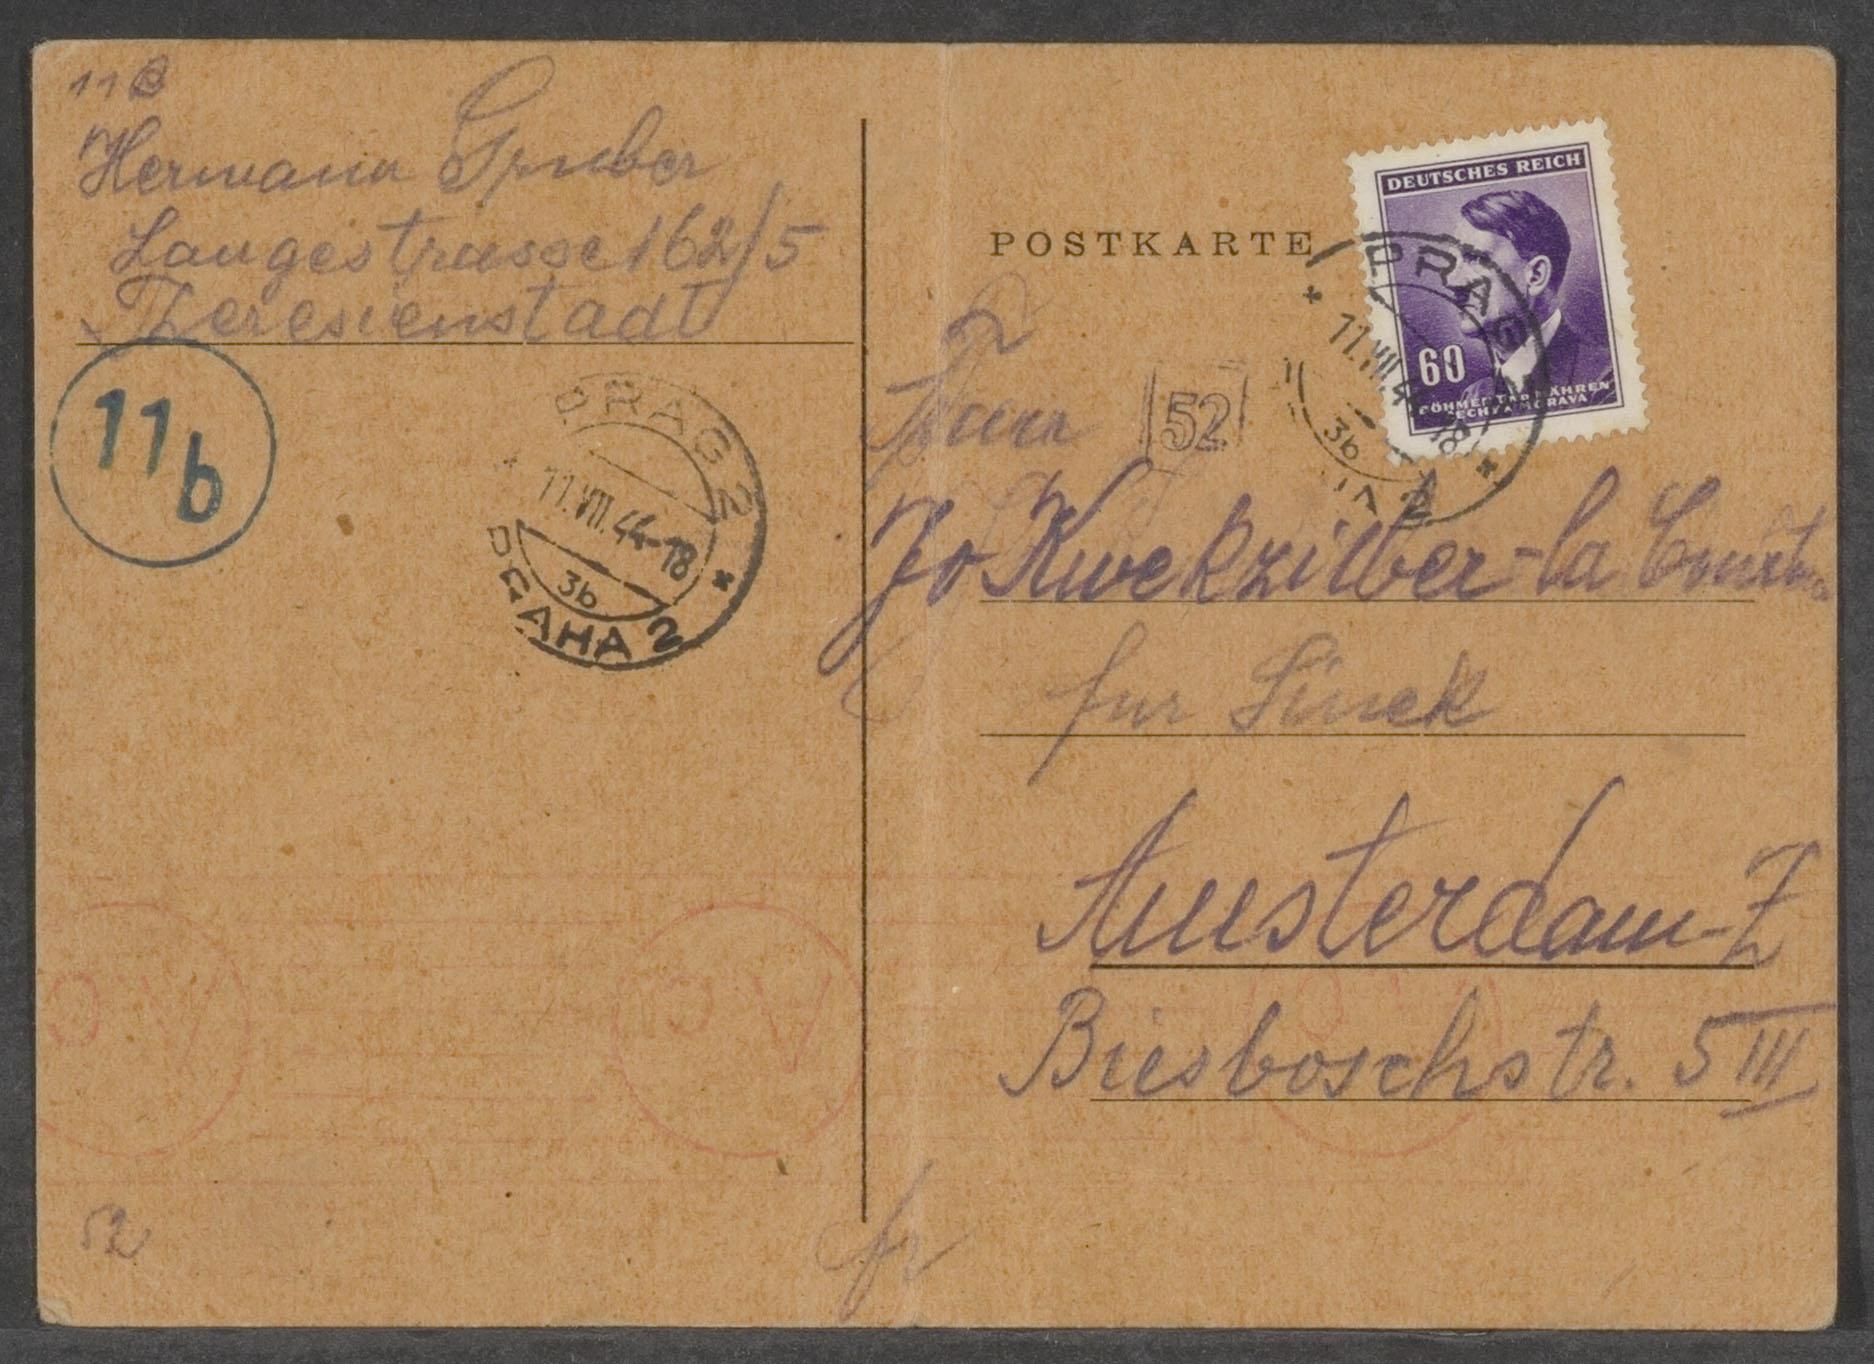 11 B
Hermann Gruber
Langestrasse 162/5
Theresienstadt
11b
PRAG 2
11.VII.44-18
3b
PRAHA 2
52
POSTKARTE
DEUTSCHES REICH
60
BÖHMEN UND MÄHREN
ČECHY A MORAVA
PRAG
11.VII.44-18
3b
52
Jo Kwekzilber-la
fur Sinek
Amsterdam-Z
Biesboschstr. 5 III